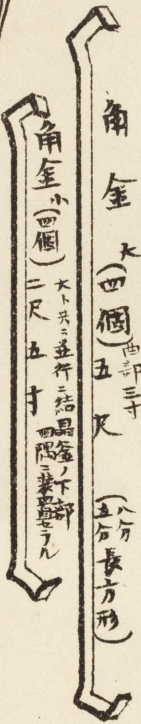 角金大(四個)五尺
曲部三寸
(八分五分長方形)
角金小(四個)二尺五寸
大ト共ニ並行ニ結晶釜ノ下部
四隅ニ装置セラル